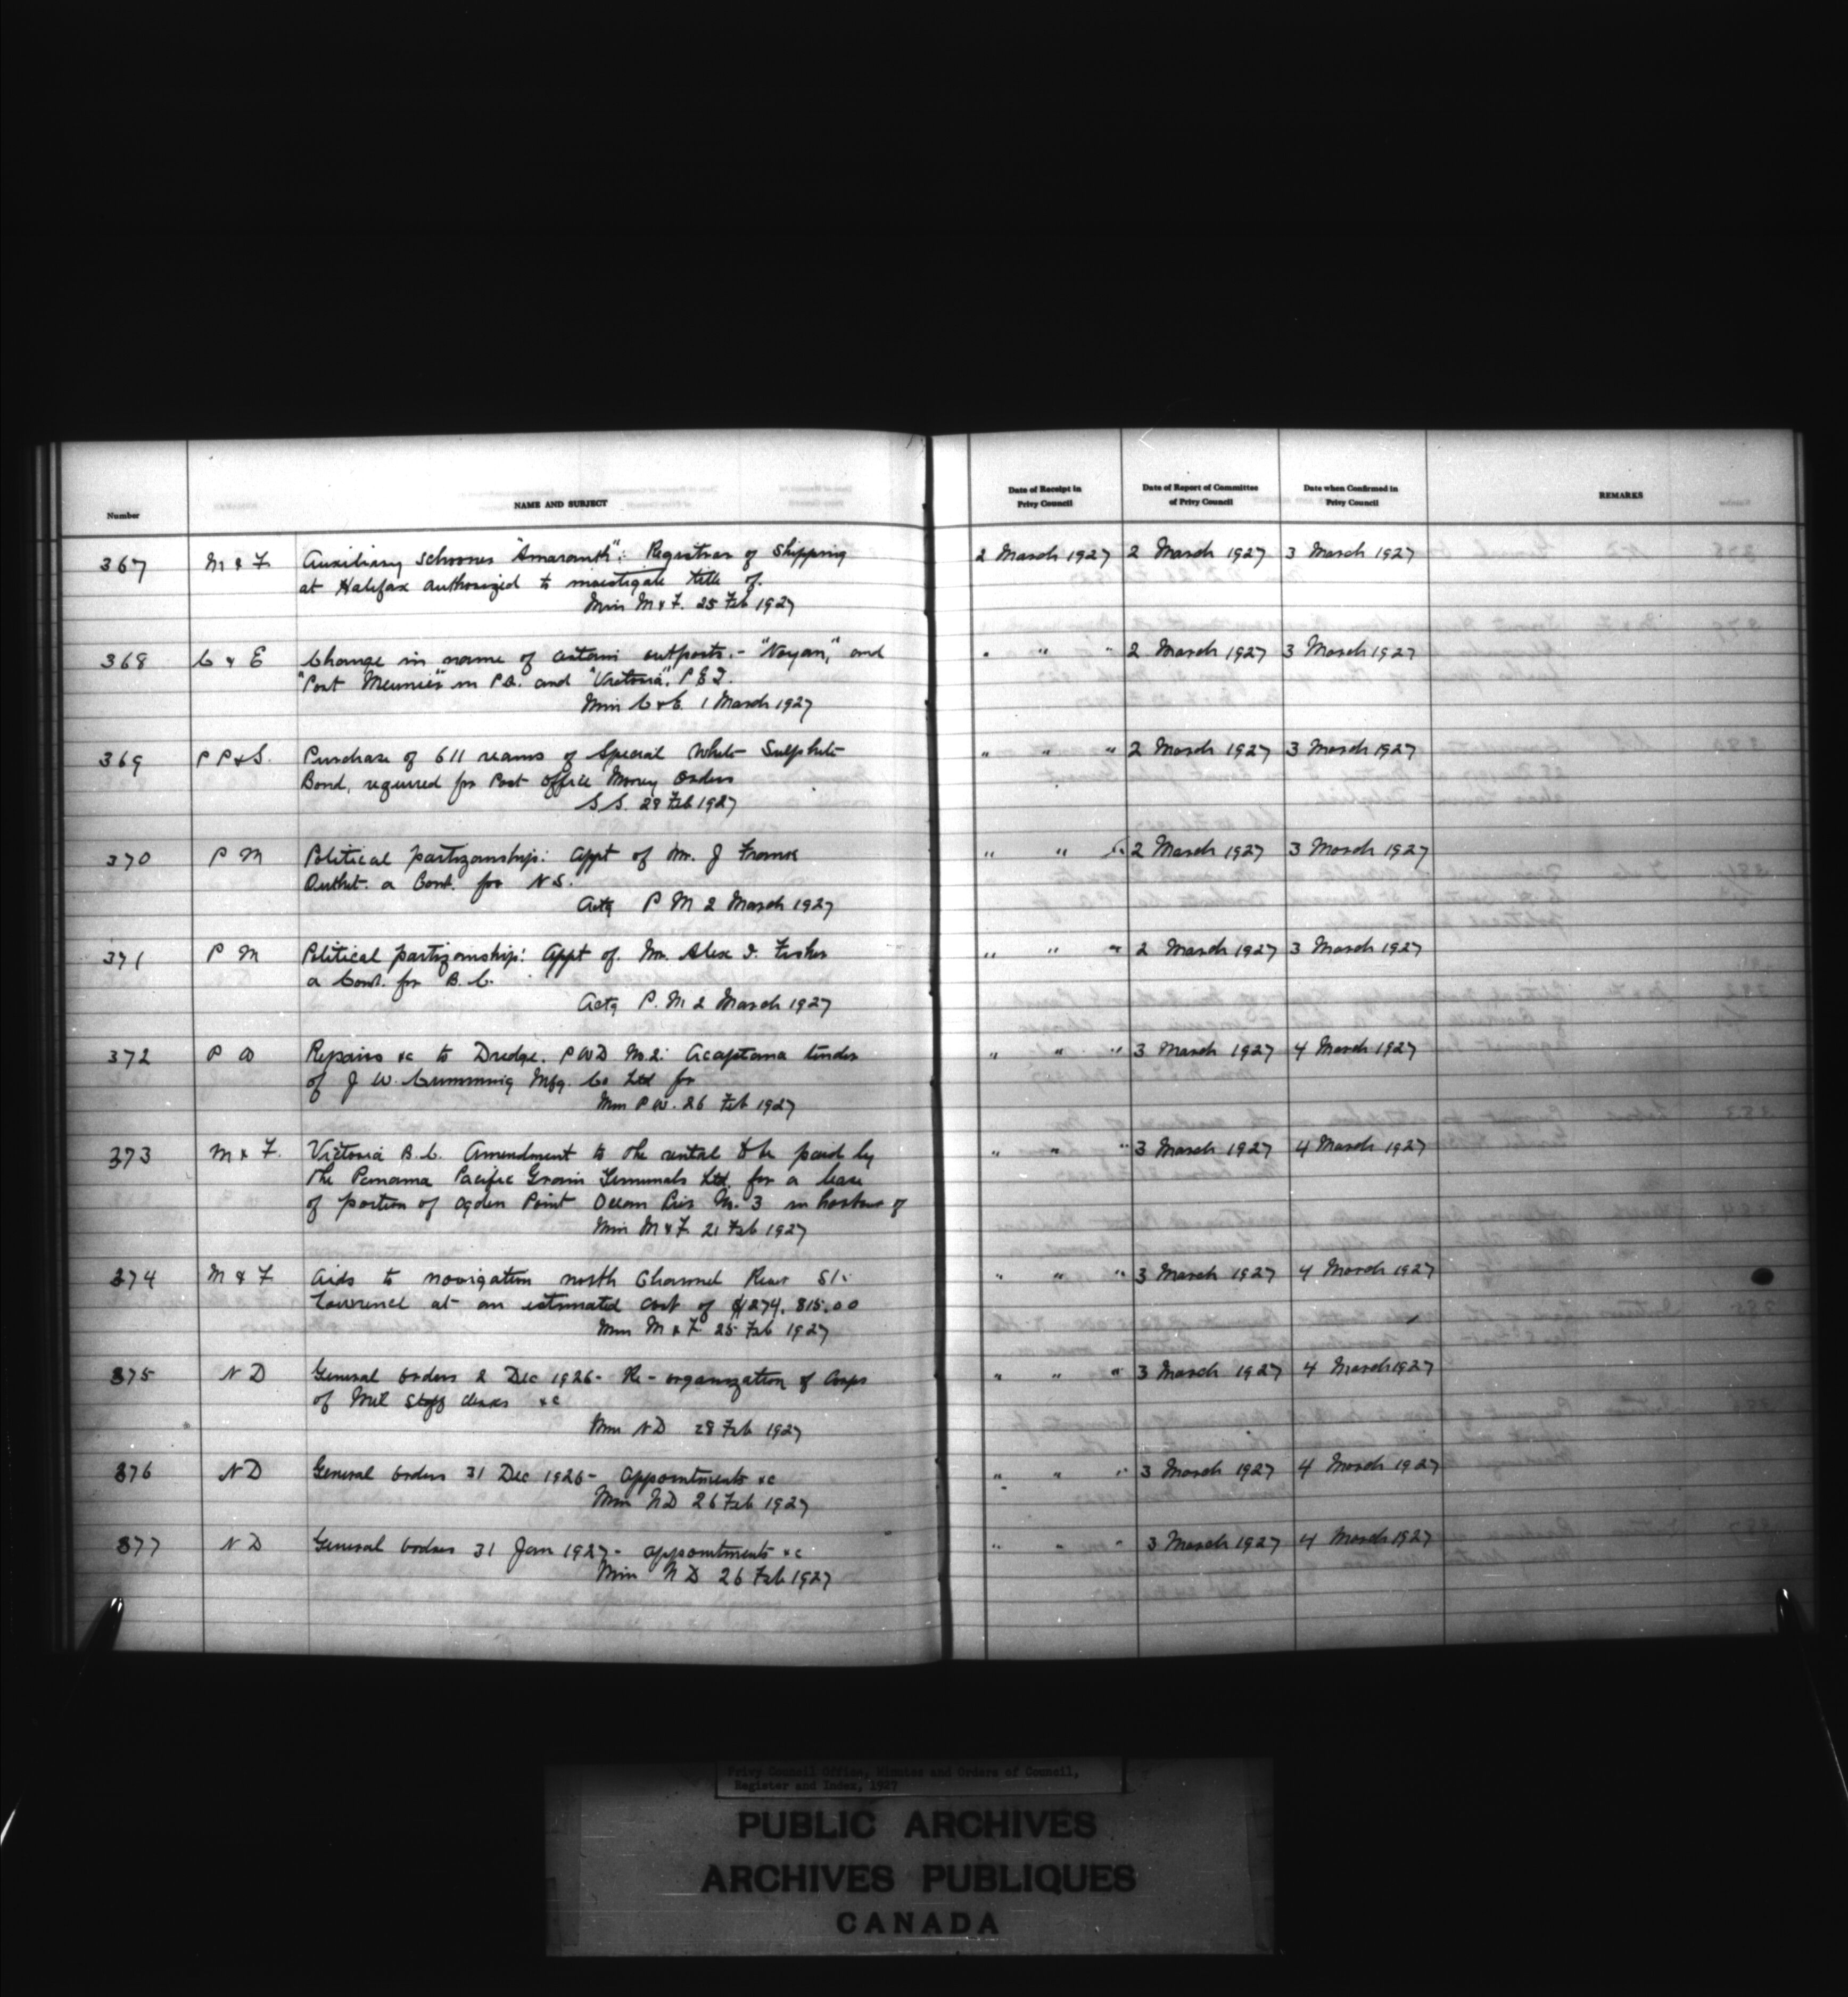 Number
NAME AND SUBJECT
Date of Receipt in Privy Council
Date of Report of Committee of Privy Council
Date when Confirmed in Privy Council
REMARKS
367 M & F Auxiliary schooner "Amaranth": Registrar of Shipping 2 March 1927 2 March 1927 3 March 1927
at Halifax authorized to investigate title of.
Min M & F. 25 Feb 1927
368 C & E Change in name of certain outports.- "Noyan," and " " " 2 March 1927 3 March 1927
"Port Meunier" in P.Q. and "Victoria", P E I.
Min C & E. 1 March 1927
369 P P & S. Purchase of 611 reams of Special White Sulphite " " " 2 March 1927 3 March 1927
Bond, required for Post Office Money Orders
S S. 28 Feb 1927
370 P M Political partizanship: Appt of Mr. J Frank " " " 2 March 1927 3 March 1927
Outhit. a Com. for N S.
Actg P M 2 March 1927
371 P M Political partizanship: Appt of. Mr. Alex I. Fisher " " " 2 March 1927 3 March 1927
a Com. for B. C.
Actg P. M 2 March 1927
372 P W Repairs &c to Dredge. P W D No. 2: Acceptance tender " " " 3 March 1927 4 March 1927
of J W. Cumming Mfg. Co Ltd for
Min P W. 26 Feb 1927
373 M & F. Victoria B. C. Amendment to the rental to be paid by " " " 3 March 1927 4 March 1927
the Panama Pacific Grain Terminals Ltd. for a lease
of portion of Ogden Point Ocean Pier No. 3 in harbour of
Min M & F 21 Feb 1927
374 M & F Aids to navigation north Channel River St. " " " 3 March 1927 4 March 1927
Lawrence at an estimated cost of $1274,815.00
Min M & F 25 Feb 1927
375 N D General Orders 2 Dec 1926- Re-organization of Corps " " " 3 March 1927 4 March 1927
of Mil Staff clerks &c
Min N D 28 Feb 1927
376 N D General Orders 31 Dec 1926- Appointments &c " " " 3 March 1927 4 March 1927
Min N D 26 Feb 1927
377 N D General Orders 31 Jan 1927- appointments &c " " " 3 March 1927 4 March 1927
Min N D 26 Feb 1927
Privy Council Office, Minutes and Orders of Council,
Register and Index, 1927
PUBLIC ARCHIVES
ARCHIVES PUBLIQUES
CANADA